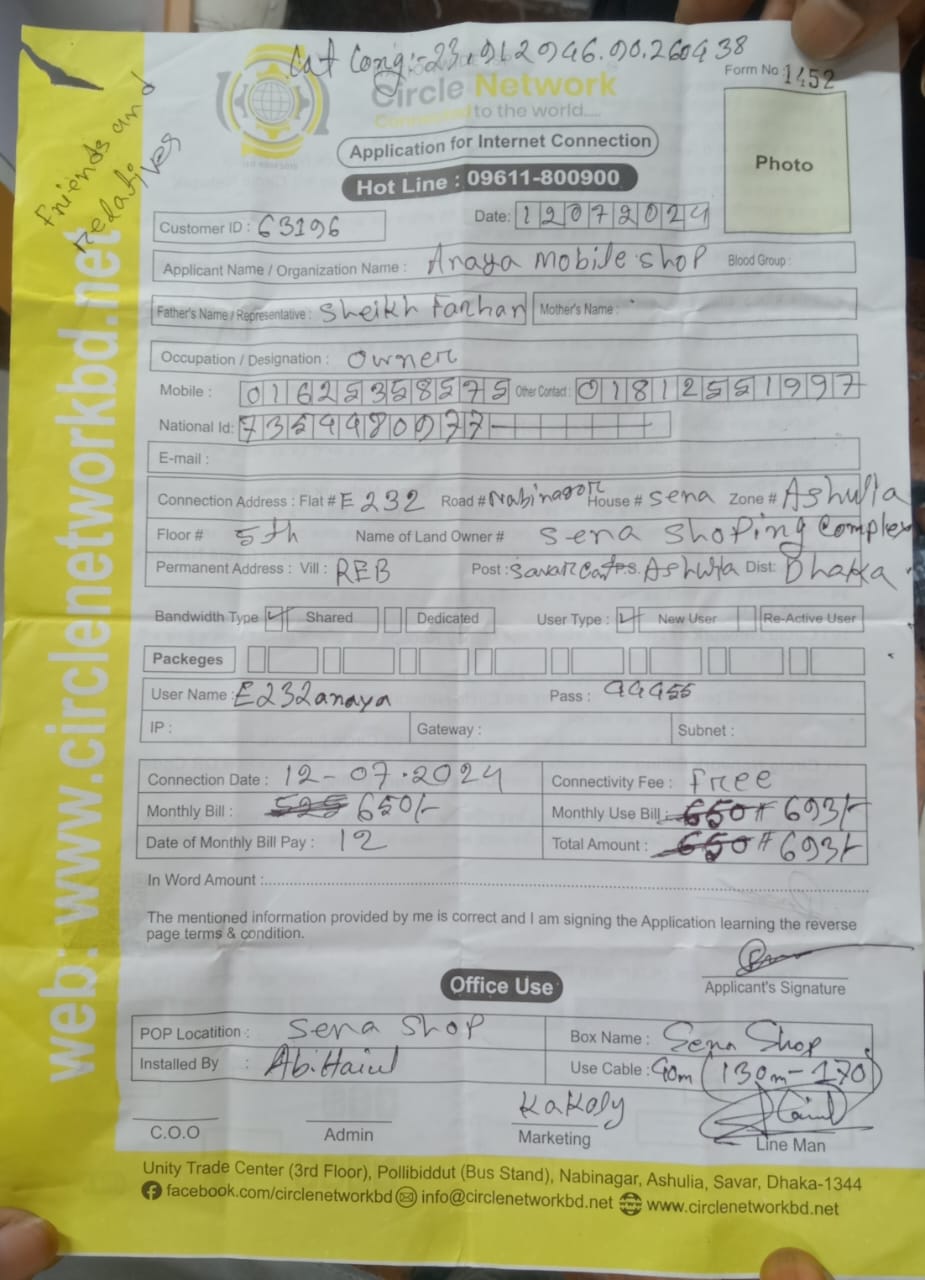 Lat Long:-23.912946.90.260438
Friends and
Relatives
Circle Network
Connected to the world.....
Form No: 1452
Application for Internet Connection
Photo
Hot Line : 09611-800900
Customer ID : 63196
Date: 12072024
Applicant Name / Organization Name : Anaya mobile shop Blood Group :
Father's Name / Representative : Sheikh Farhan Mother's Name :
Occupation / Designation : Owner
Mobile : 01625358575 Other Contact : 01812551997
National Id: 7354480077
E-mail :
Connection Address : Flat # E232 Road # Nabinagor House # Sena Zone # Ashulia
Floor # 5th Name of Land Owner # Sena Shoping Complex
Permanent Address : Vill : REB Post : Savar Cantt P.S. Ashulia Dist: Dhaka
Bandwidth Type Shared Dedicated User Type : New User Re-Active User
Packeges
User Name : E232anaya Pass : 44455
IP : Gateway : Subnet :
Connection Date : 12-07.2024 Connectivity Fee : Free
Monthly Bill : 525 650/- Monthly Use Bill : 650 # 693/-
Date of Monthly Bill Pay : 12 Total Amount : 650 # 693/-
In Word Amount :
The mentioned information provided by me is correct and I am signing the Application learning the reverse
page terms & condition.
Applicant's Signature
Office Use
POP Locatition : Sena Shop Box Name : Sena Shop
Installed By : Use Cable : 40m (130m-170)
C.O.O Admin Kakoly
Marketing Line Man
Unity Trade Center (3rd Floor), Pollibiddut (Bus Stand), Nabinagar, Ashulia, Savar, Dhaka-1344
facebook.com/circlenetworkbd info@circlenetworkbd.net www.circlenetworkbd.net
web: www.circlenetworkbd.net